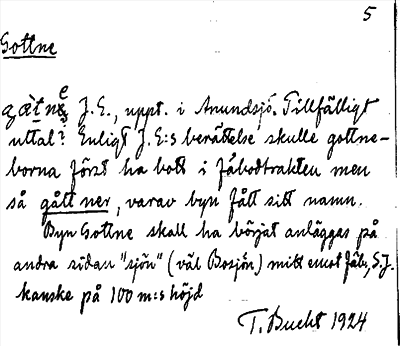 5
Gottne
gàtnę J.E., uppt. i Anundsjö. Tillfälligt
uttal? Enligt J.E:s berättelse skulle gottne-
borna först ha bott i Fäbodtrakten men
så gått ner, varav byn fått sitt namn.
Byn Gottne skall ha börjat anläggas på
andra sidan "sjön" (väl Bosjön) mitt emot Fäb., S.J.
kanske på 100 m:s höjd
T. Bucht 1924